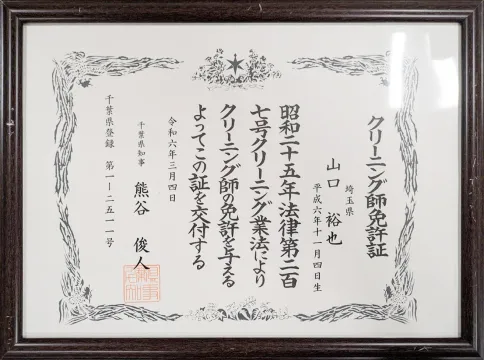 クリーニング師免許証
埼玉県
山口 裕也
平成六年十一月四日生
昭和二十五年法律第二百
七号クリーニング業法により
クリーニング師の免許を与える
よってこの証を交付する
令和六年三月四日
千葉県知事 熊谷 俊人
千葉県登録 第一ー二五一一号